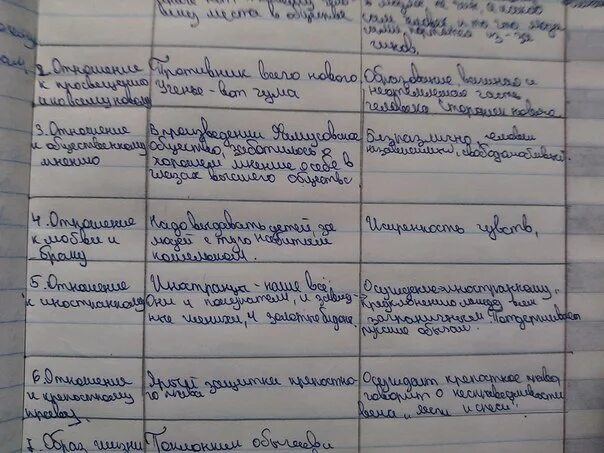 шину места в обществе
чинов.
2. Отношение
к просвещению
и ко всему новому
Противник всего нового,
Ученье - вот чума
Образование важная и
неотъемлемая часть
человека. Сторонник нового.
3. Отношение
к общественному
мнению
В произведении Фамусовское
общество, заботилось о
хорошем мнение о себе в
глазах высшего общества
Безразлично человек
независимый, свободолюбивый.
4. Отношение
к любви и
браку
Надо выдавать детей за
людей с туго набитым
кошельком.
Искренность чувств,
5. Отношение
к иностранному
Иностранцы - наше всё,
Они и покупатели, и
женихи, и
Осуждение иностранному,
перед
заграничным
русские обычаи.
6. Отношение
к крепостному
праву.
Ярый защитник крепостно-
го права
Осуждает крепостное право,
говорит о несправедливости
века "лести и спеси".
7. Образ жизни
Поклонник обычаев и